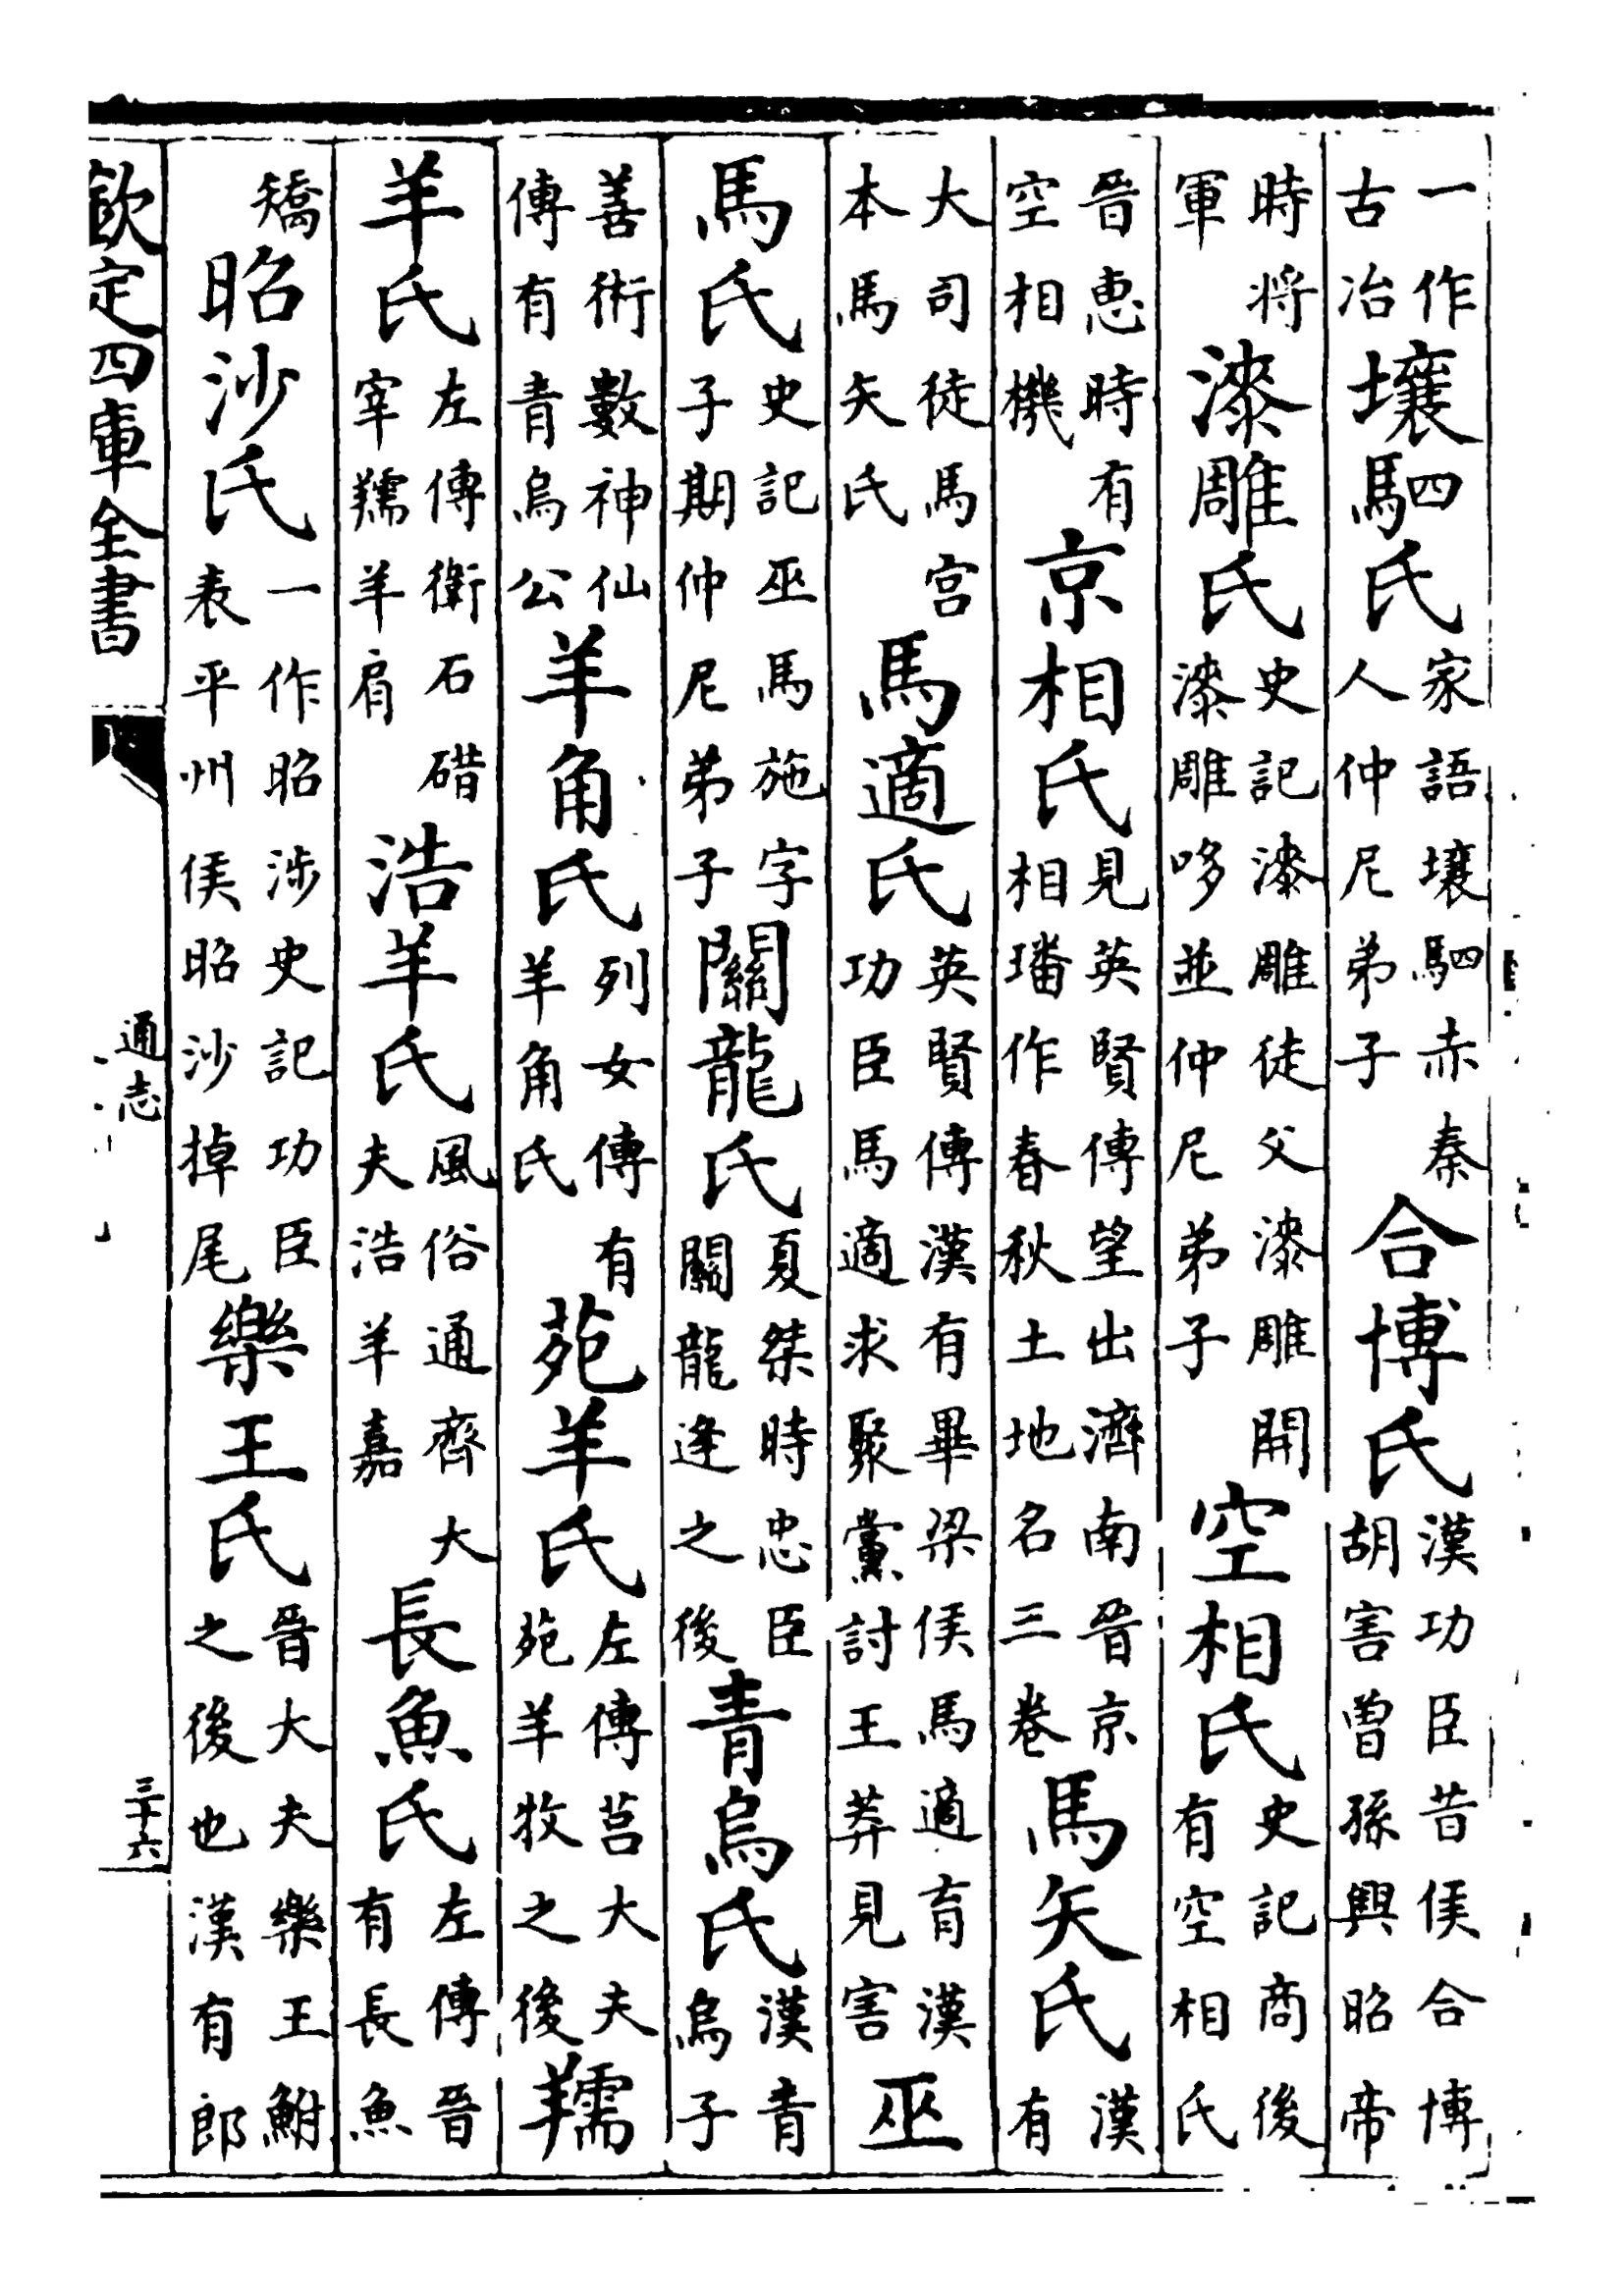 一作古冶壤駟氏家語壤駟赤秦人仲尼弟子合博氏漢功臣昔侯合博胡害曽孫興昭帝
時将軍漆雕氏史記漆雕徒父漆雕開漆雕哆並仲尼弟子空相氏史記商後有空相氏
晉恵時有空相機京相氏見英賢傳望出濟南晉京相相璠作春秋土地名三卷馬矢氏漢有
大司徒馬宫本馬矢氏馬適氏英賢傳漢有畢梁侯馬適育漢功臣馬適求聚黨討王莽見害巫
馬氏史記巫馬施字子期仲尼弟子關龍氏夏桀時忠臣關龍逄之後青烏氏漢青烏子
善術數神仙傳有青烏公羊角氏列女傳有羊角氏苑羊氏左傳莒大夫苑羊牧之後羺
羊氏左傳衛石碏宰羺羊肩浩羊氏風俗通齊大夫浩羊嘉長魚氏左傳晉有長魚
矯昭沙氏一作昭涉史記功臣表平州侯昭沙掉尾樂王氏晉大夫樂王鮒之後也漢有郎
欽定四庫全書
通志
三十六